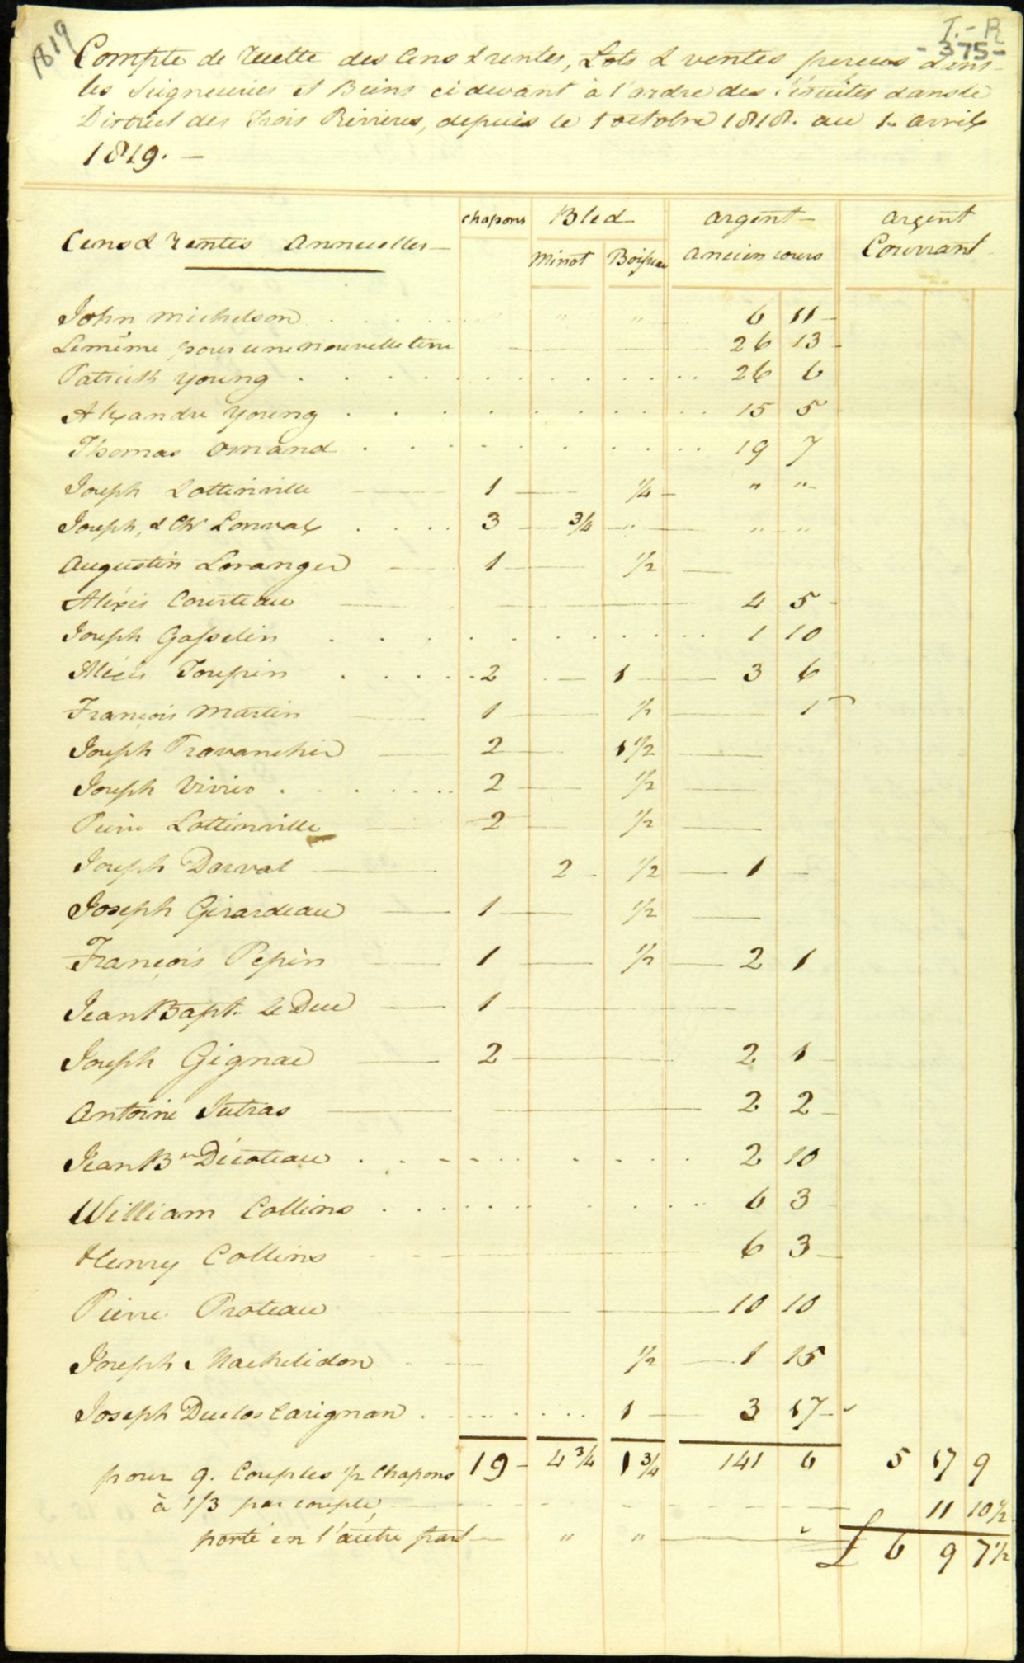 1819
I.-R
-375-
Compte de Recette des Cens & rentes, Lots & ventes percus dans
les Seigneuries et Biens ci devant à l'ordre des Jesuites dans le
District des Trois Rivieres, depuis le 1 octobre 1818. au 1. avril
1819. —
chapons Bled argent argent
Cens & Rentes Annuelles Minot Boisseau ancien cours Courrant
John Michelson " " 6 11
Le même pour une nouvelle terre 26 13
Patrick Young 26 6
Alexandre Young 15 5
Thomas Ornand 19 7
Joseph Lottinville 1 ¼ " "
Joseph, & Chs Lorival 3 ¾ " " "
Augustin Loranger 1 ½
Alexis Courteau 4 5
Joseph Gasselin 1 10
Alexis Toupin 2 1 3 6
François Martin 1 ½ 1
Joseph Provancher 2 1½
Joseph Vivier 2 ½
Pierre Lottinville 2 ½
Joseph Dorval 2 ½ 1
Joseph Girardeau 1 ½
François Pepin 1 ½ 2 1
Jean Bapt. LeDuc 1
Joseph Gignac 2 2 1
Antoine Jutras 2 2
Jean Bte Décoteau 2 10
William Collins 6 3
Henry Collins 6 3
Pierre Proteau 10 10
Joseph Machelidon ½ 1 15
Joseph Duclos Carignan 1 3 17
pour 9. Couples ½ Chapons 19 4¾ 1¾ 141 6 5 17 9
à 1/3 par couple 11 10½
porté en l'autre part " " £ 6 9 7½